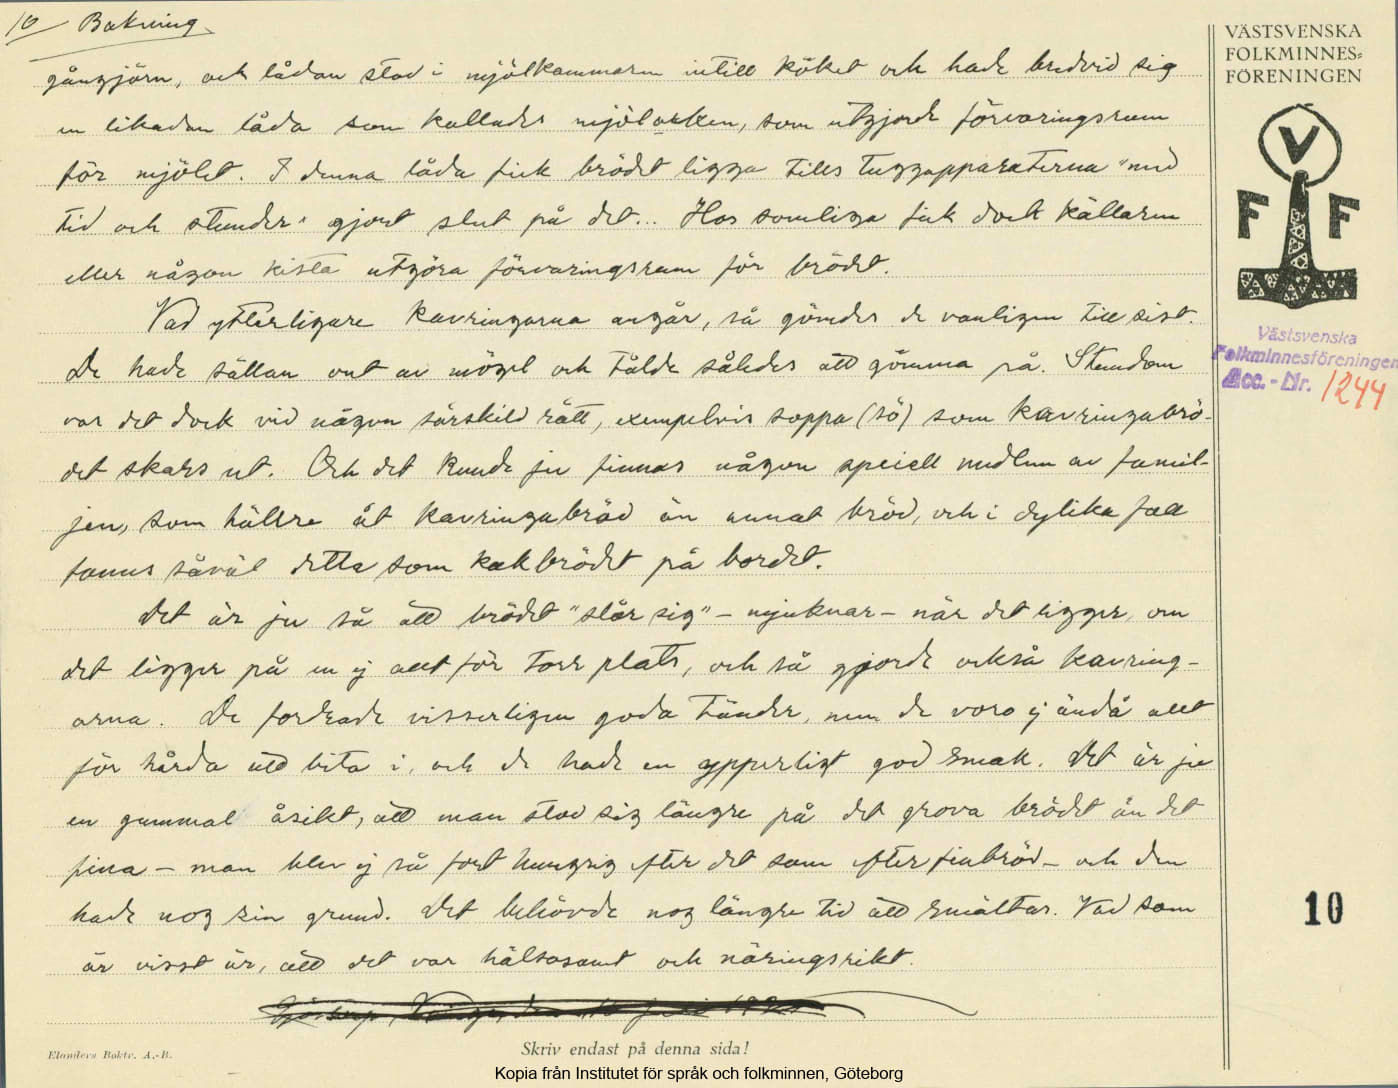 10 Bakning.
gångjärn, och lådan stod i mjölkammaren intill köket och hade bredvid sig
en likadan låda som kallades mjölarken, som utgjorde förvaringsrum
för mjölet. I denna låda fick brödet ligga tills tuggapparaterna "med
tid och stunder" gjort slut på det... Hos somliga fick dock källaren
eller någon kista utgöra förvaringsrum för brödet.
Vad ytterligare kavringarna angår, så gömdes de vanligen till sist.
De hade sällan ont av mögel och tålde således att gömma på. Stundom
var det dock vid någon särskild rätt, exempelvis soppa (sö) som kavringabrö-
det skars ut. Och det kunde ju finnas någon speciell medlem av famil-
jen, som hällre åt kavringabröd än annat bröd, och i dylika fall
fanns såväl detta som kakbrödet på bordet.
Det är ju så att brödet "slår sig" – mjuknar – när det ligger, om
det ligger på en ej allt för torr plats, och så gjorde också kavring-
arna. De fordrade visserligen goda tänder, men de voro ej ändå allt
för hårda att bita i, och de hade en ypperligt god smak. Det är ju
en gammal åsikt, att man stod sig längre på det grova brödet än det
fina – man blev ej så fort hungrig efter det som efter finbröd – och den
hade nog sin grund. Det behövde nog längre tid att smältas. Vad som
är visst är, att det var hälsosamt och näringsrikt.
VÄSTSVENSKA
FOLKMINNES-
FÖRENINGEN
V
F F
Västsvenska
Folkminnesföreningen
Acc.-Nr. 1244
10
Elanders Boktr. A.-B.
Skriv endast på denna sida!
Kopia från Institutet för språk och folkminnen, Göteborg